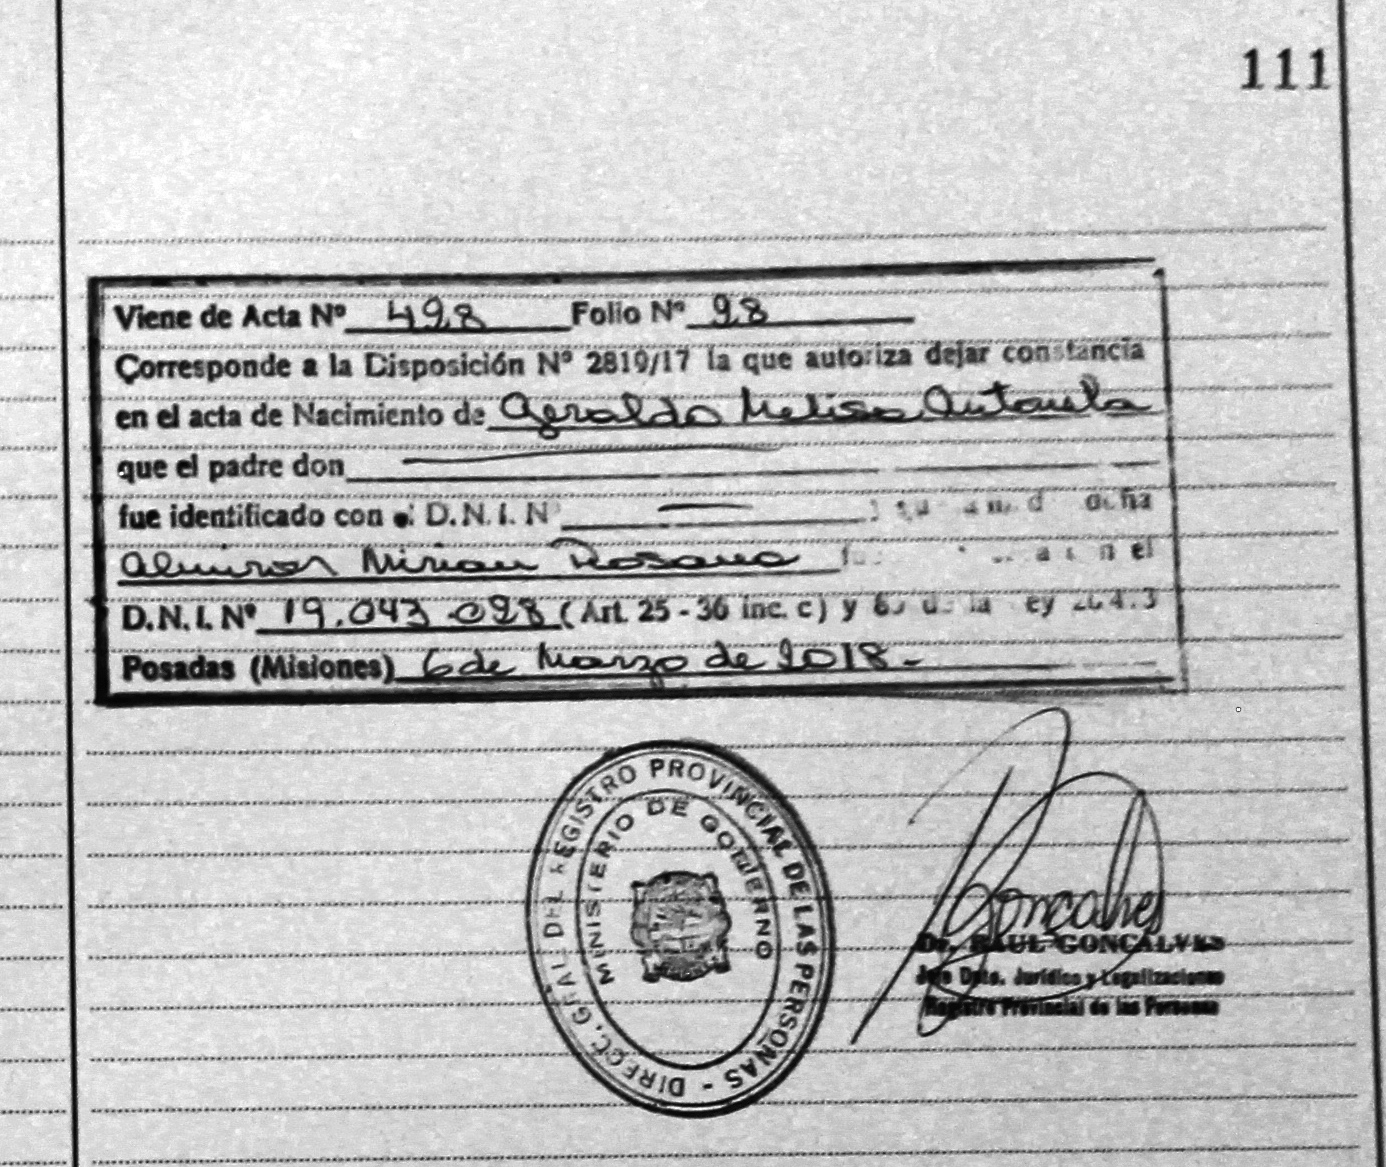 111
Viene de Acta Nº 498 Folio Nº 98
Corresponde a la Disposición Nº 2819/17 la que autoriza dejar constancia
en el acta de Nacimiento de Geraldo Melisa Antonela
que el padre don
fue identificado con el D.N.I. N
Miriam Rosana el
D.N.I. Nº 19.043.098 (Art. 25 - 36 inc. c) y la
Posadas (Misiones) 6 de Marzo de 2018.-
DIRECC. GRAL DEL REGISTRO PROVINCIAL DE LAS PERSONAS -
MINISTERIO DE GOBIERNO
Goncalves
Dr. RAUL GONCALVES
Jefe Dpto. Jurídico y Legalizaciones
Registro Provincial de las Personas